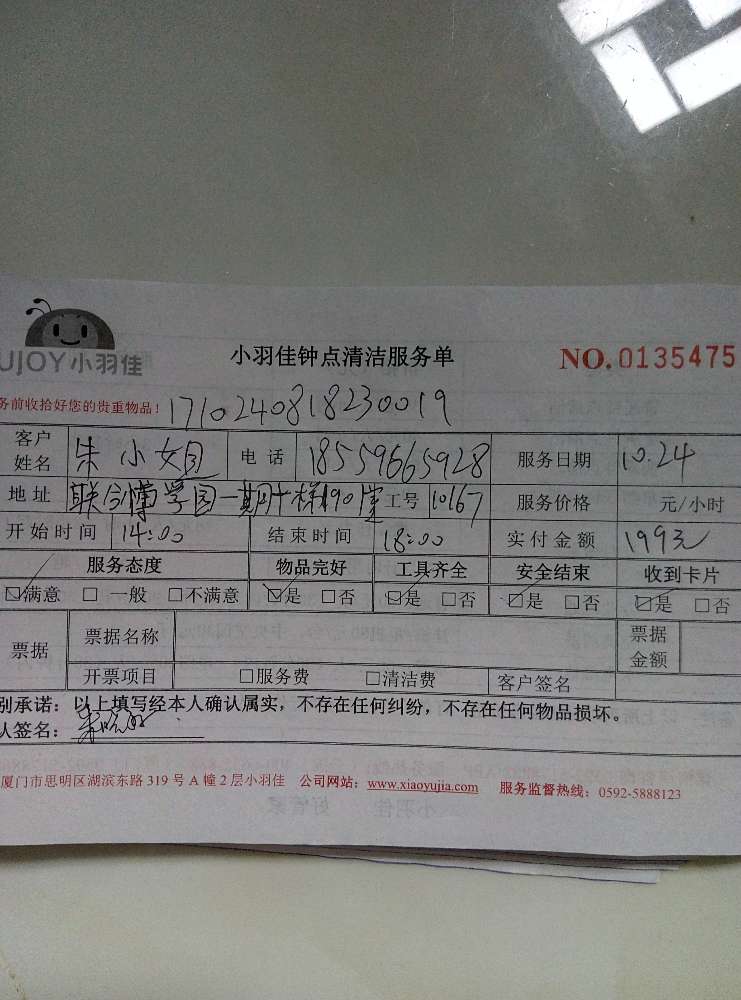 UJOY小羽佳
小羽佳钟点清洁服务单
NO.0135475
务前收拾好您的贵重物品！1710240818230019
客户姓名 朱小姐 电话 18559665928 服务日期 10.24
地址 联合博学园一期 工号 10167 服务价格 元/小时
开始时间 14:00 结束时间 18:00 实付金额 199元
服务态度 物品完好 工具齐全 安全结束 收到卡片
☑满意 □一般 □不满意 ☑是 □否 ☑是 □否 ☑是 □否 ☑是 □否
票据 票据名称 票据金额
开票项目 □服务费 □清洁费 客户签名
别承诺：以上填写经本人确认属实，不存在任何纠纷，不存在任何物品损坏。
人签名：
厦门市思明区湖滨东路319号A幢2层小羽佳 公司网站：www.xiaoyujia.com 服务监督热线：0592-5888123